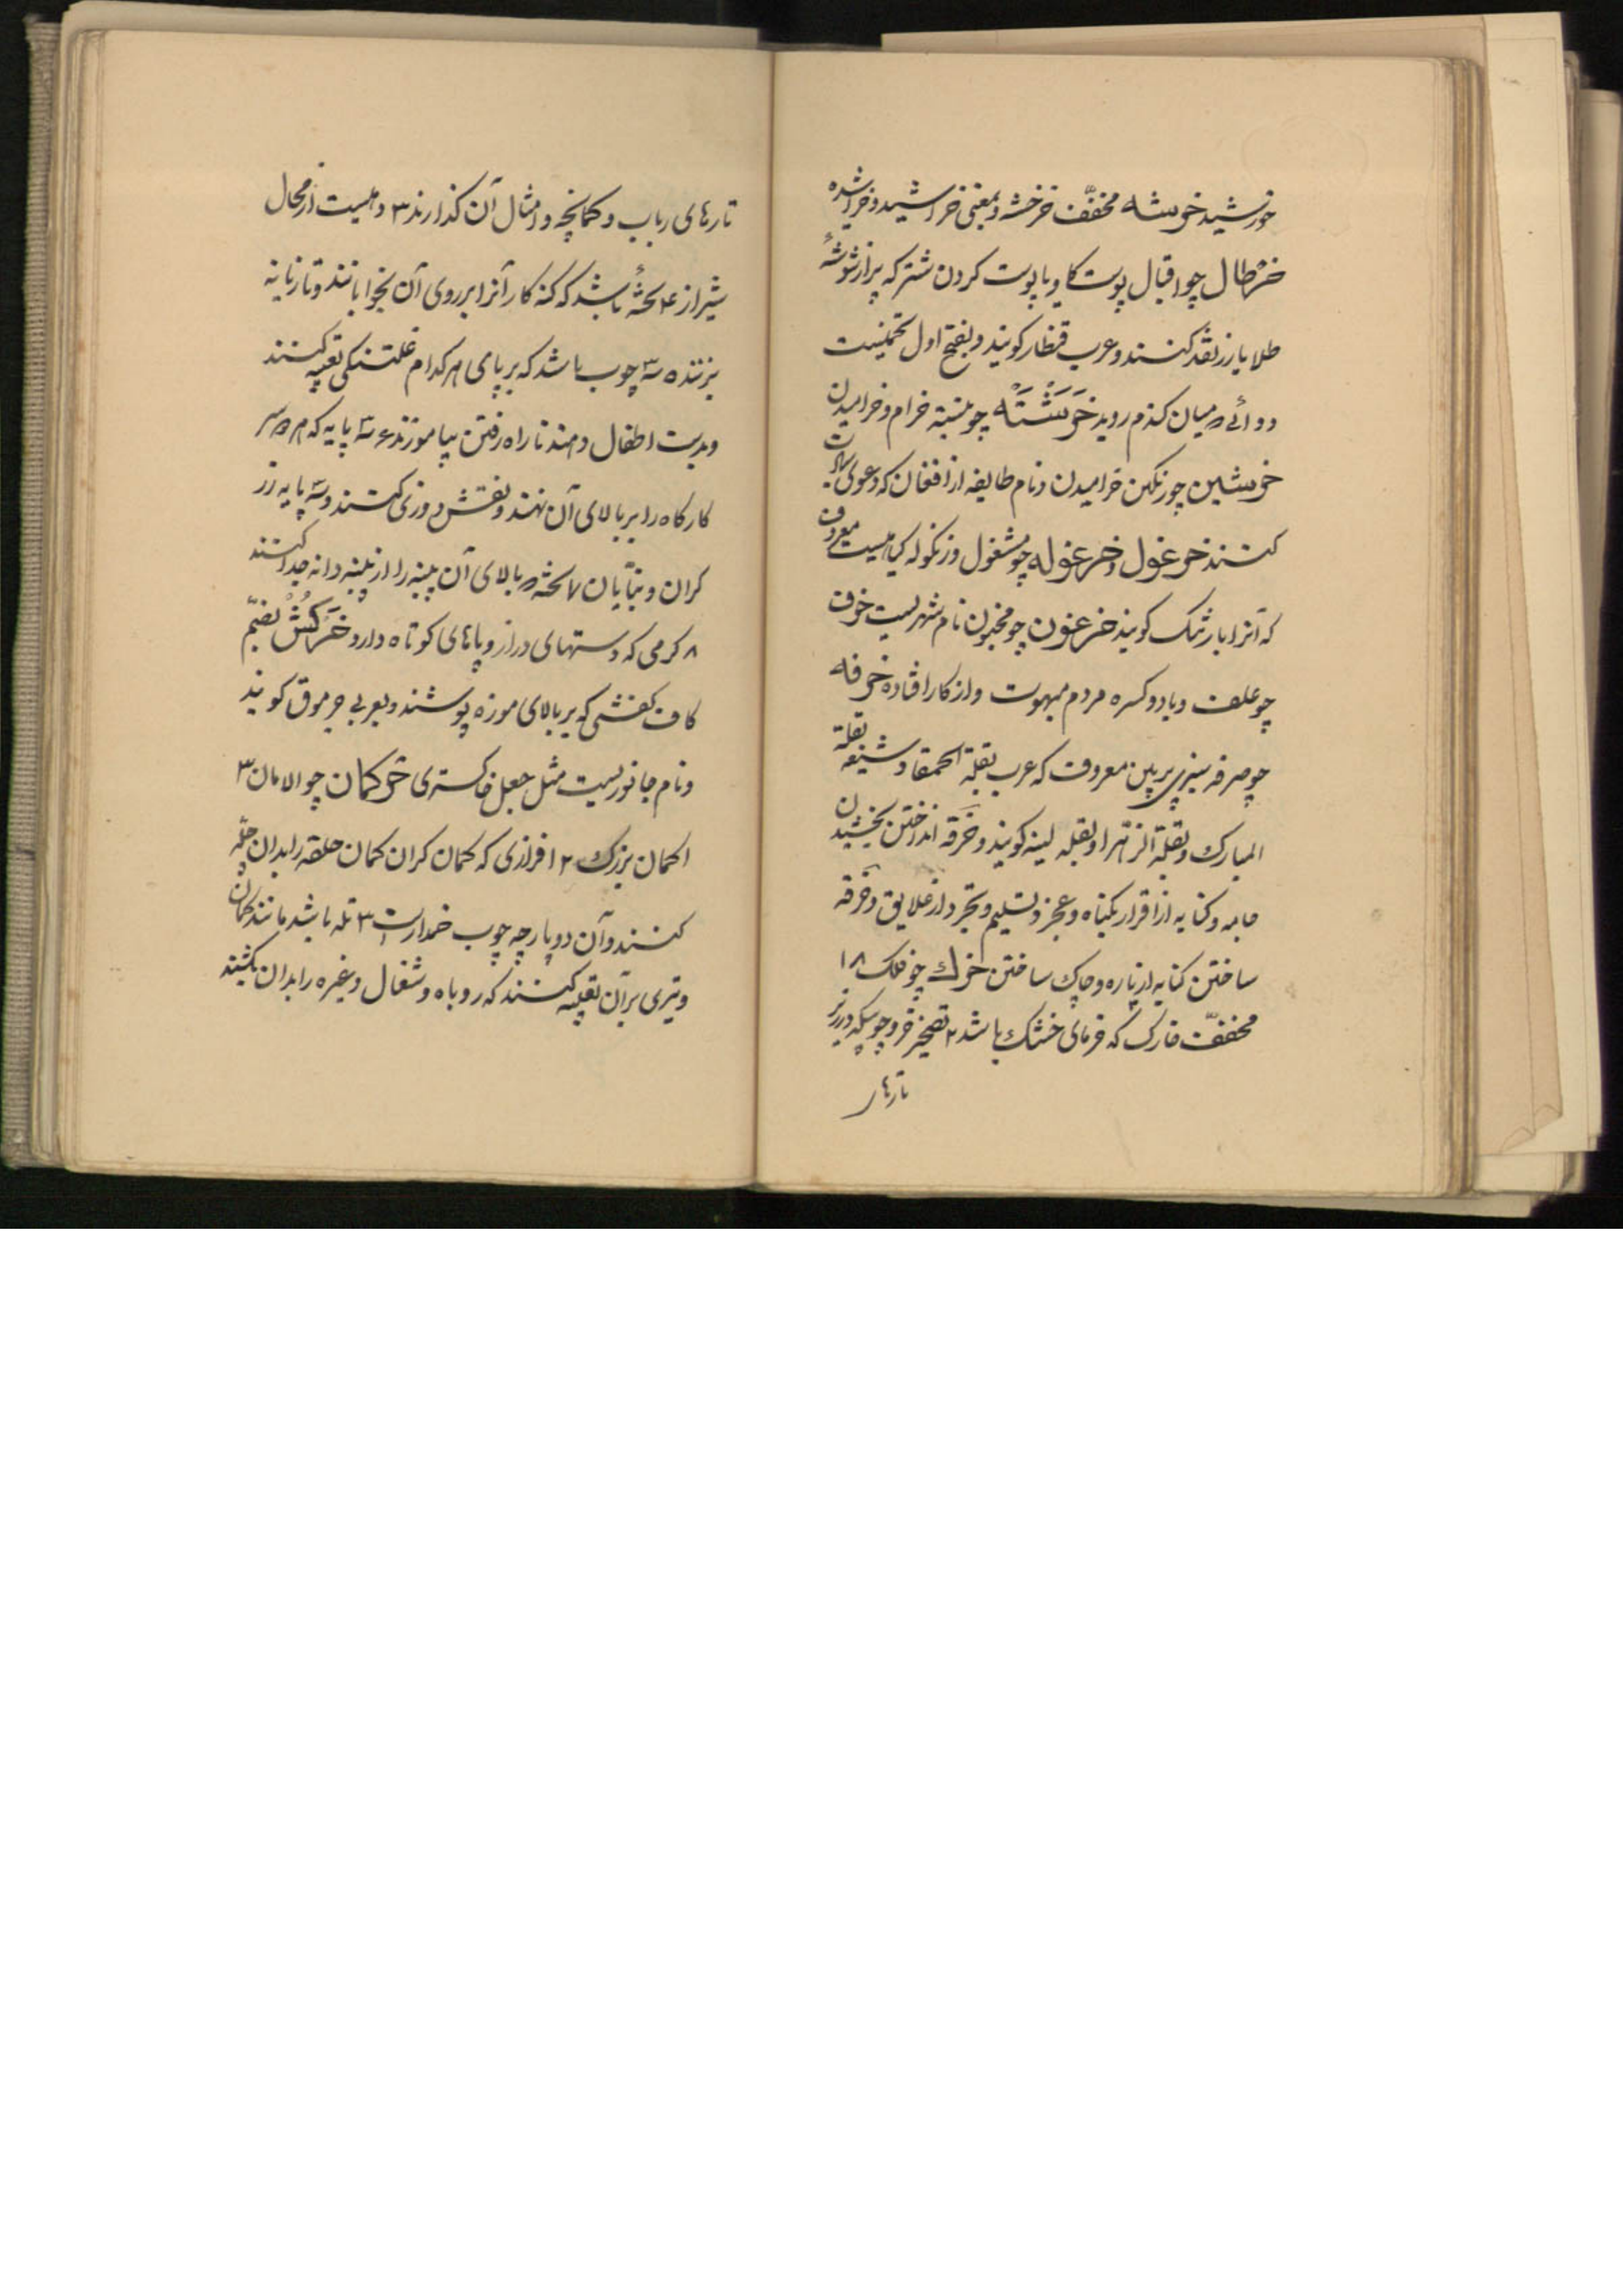 خورشید خرشه مخفّف خرخشه و بمعنی خراشید و خراشیده
خرطال چو اقبال پوست کاو یا پوست کردن شتر که پر از شوشهٔ
طلا یا زر نقد کنند و عرب قنطار کویند و بفتح اول تخمیست
دوائے در میان کندم روید خَرَشَتَه چو بسته خرام و خرامیدن
خرشین چو رنکین خرامیدن و نام طایفه از افغان که دعوی سیادت
کنند خرغول و خرغوله چو مشغول و زنکوله کیاهیست معروف
که آنرا بارتنک کویند خرغون چو مجنون نام شهریست خرف
چو علف و بادو کسره مردم مبهوت و از کار افتاده خرفه
چو صرفه سبزی پرپهن معروف که عرب بقلة الحمقا و شیعه بقلة
المبارک و بقلة الزهرا و بقله لینه کویند و خَرقه انداختن بخشیدن
جامه و کنایه از اقرار بکناه و عجز و تسلیم و تجرد از علایق و خرقه
ساختن کنایه از پاره و چاک ساختن خرک چو فلک ۸ ۱
مخففّ خارک که خرمای خشک باشد ۲ تصغیر خر و چوبیکه در زیر
تارها
تارهای رباب و کمانچه و امثال آن کذارند ۳ دهیست از محال
شیراز ۴ تختهٔ باشد که کنه کار آنرا بر روی آن بخوابانند و تازیانه
بزنند ۵ سه چوب باشد که بر پای هر کدام غلتنکی تعبیه کنند
و بدست اطفال دهند تا راه رفتن بیاموزند ۶ سه پایه که هر دو سر
کارکاه را بر بالای آن نهند و نقش دوزی کنند و سه پایه زر
کران و بنّایان ۷ تخته که بالای آن پنبه را از پنبه دانه جدا کنند
۸ کرمی که دستهای دراز و پاهای کوتاه دارد خَرَکُشْ بضمّ
کاف کفشی که بر بالای موزه پوشند و بعربی جرموق کویند
و نام جانوریست مثل جعل خاکستری خرکمان چو الامان ۳
۱ کمان بزرک ۲ افرازی که کمان کران کمان حلقه را بدان چلّه
کنند و آن دو پارچه چوب خمدار است ۳ تله باشد مانند کمان
و تیری بر آن تعبیه کنند که روباه و شغال و غیره را بدان بکشند